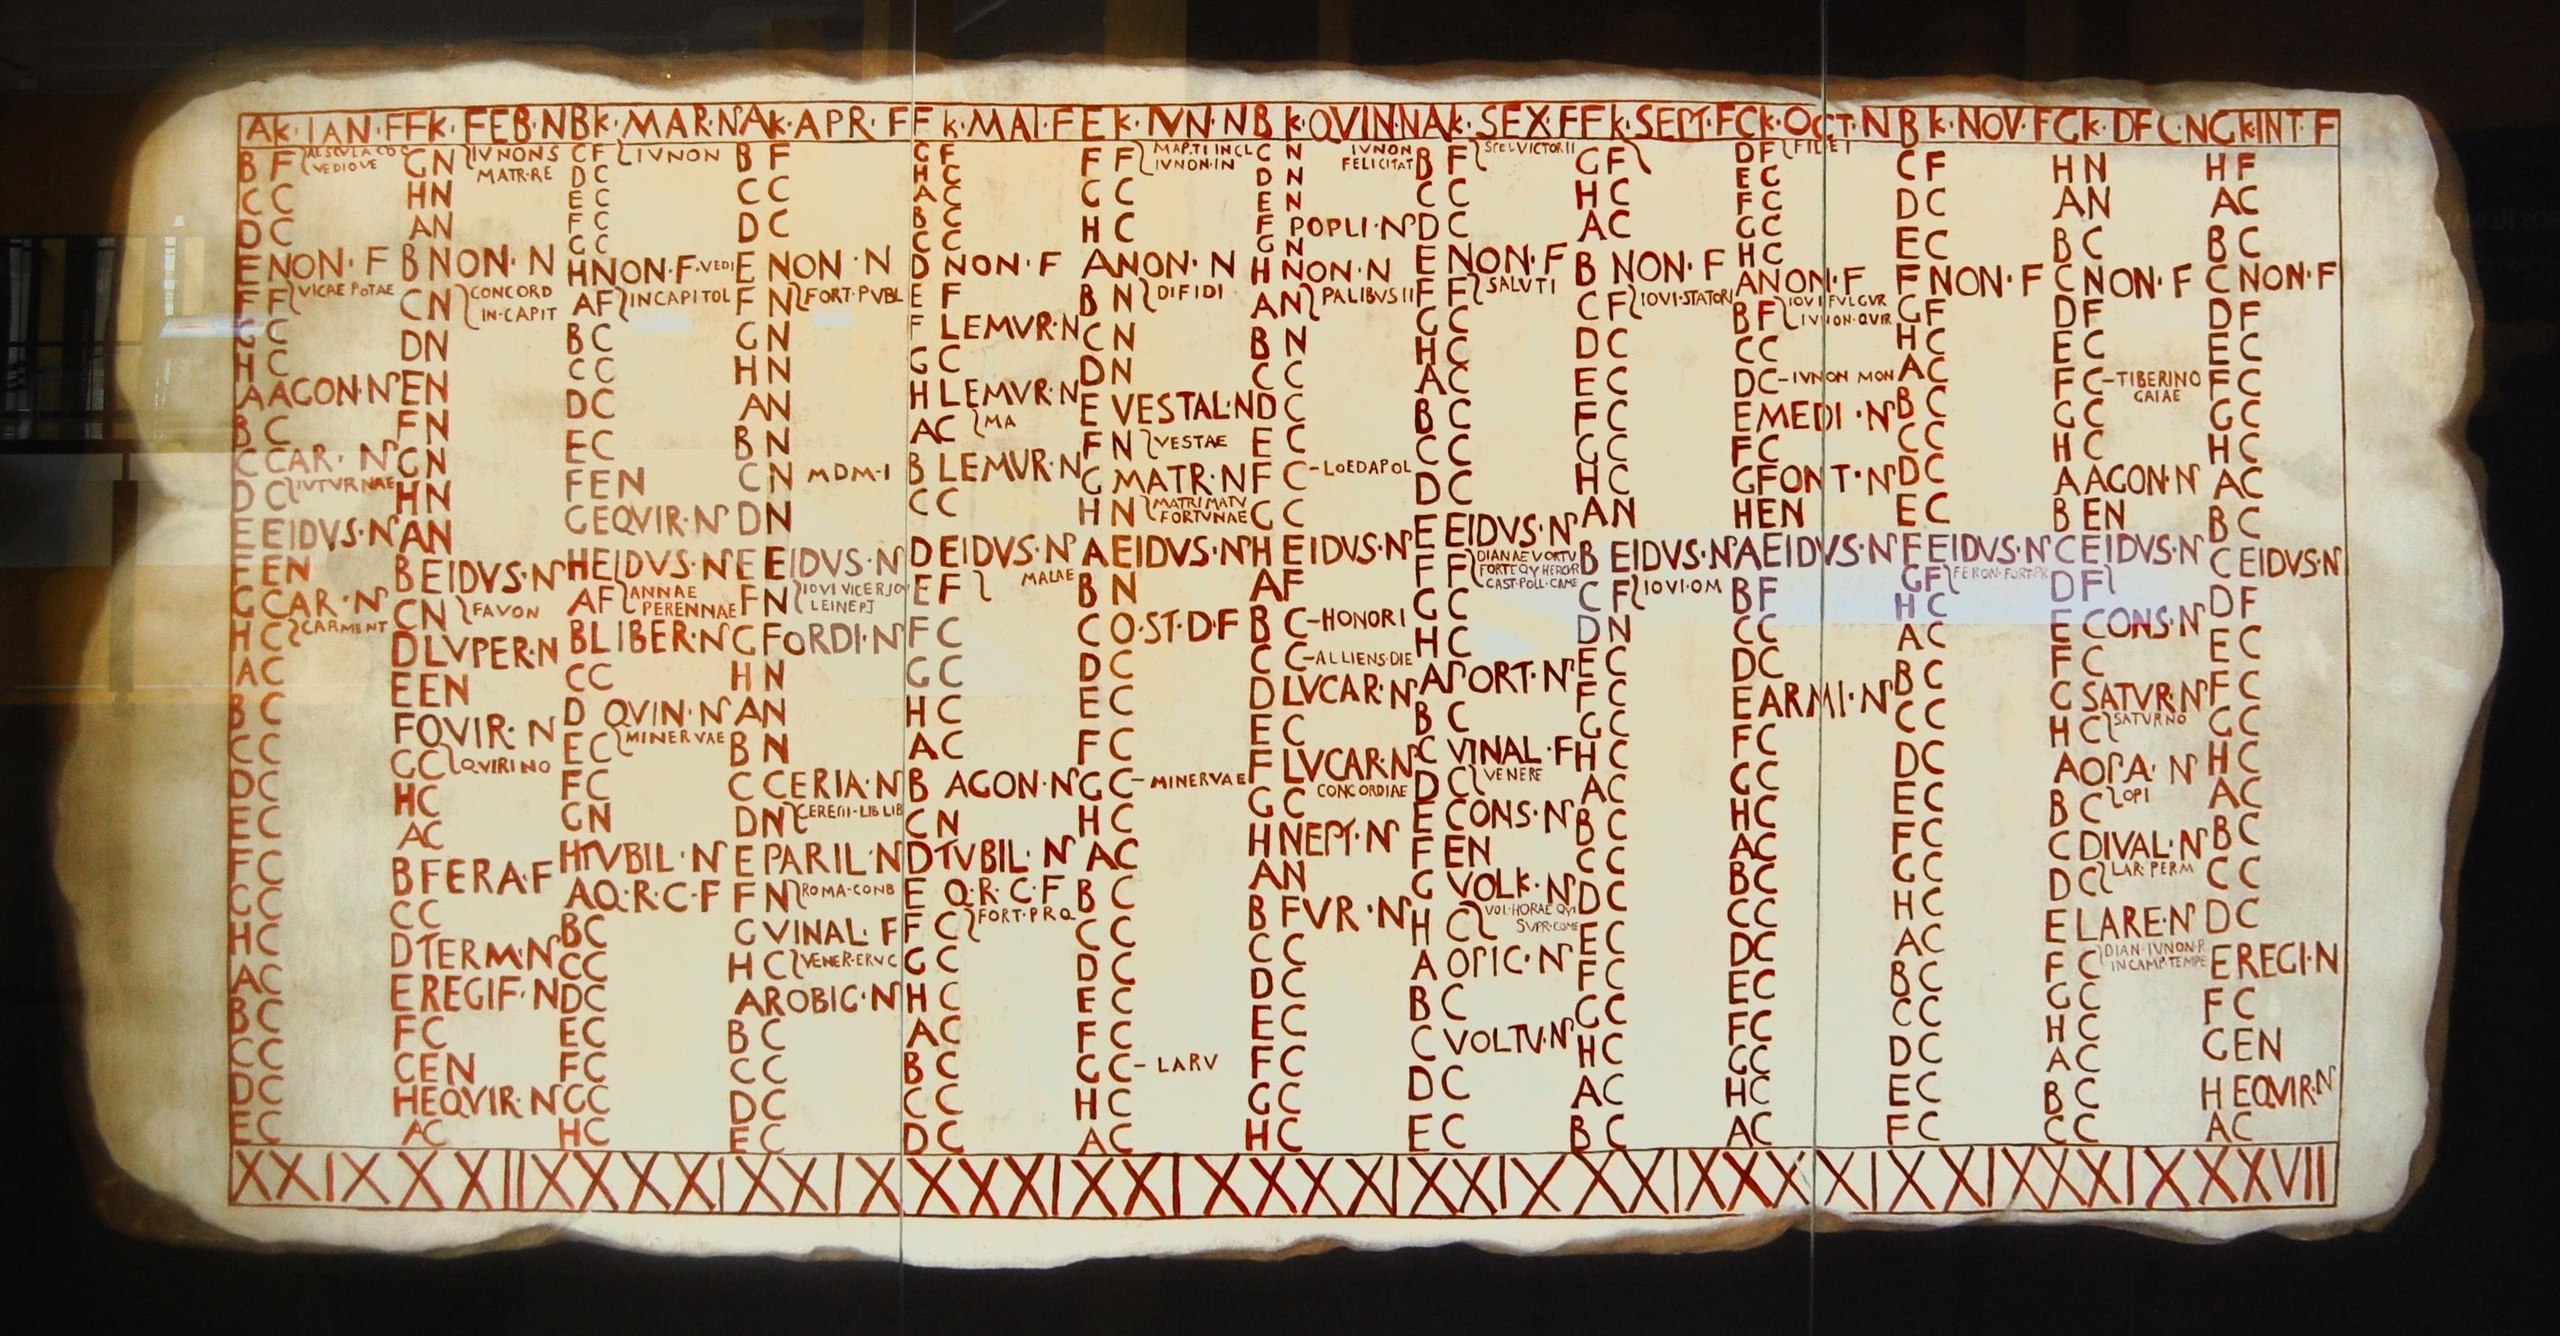 AK·IAN·F FK·FEB·N BK·MAR·N AK·APR·F FK·MAI·F EK·IVN·N BK·QVIN·N AK·SEX·F FK·SEPT·F CK·OCT·N BK·NOV·F GK·DEC·N GK·INT·F
B F VEDIOVE
C C
D C
E NON·F
F F VICAE POTAE
G C
H C
A AGON·N
B C
C CAR·N
D C IVTVRNAE
E EIDVS·N
F EN
G CAR·N
H C CARMENT
A C
B C
C C
D C
E C
F C
G C
H C
A C
B C
C C
D C
E C
G N IVNONS
MATR·RE
H N
A N
B NON·N
C N CONCORD
IN·CAPIT
D N
E N
F N
G N
H N
A N
B EIDVS·N
C N FAVON
D LVPER·N
E EN
F QVIR·N
G C QVIRINO
H C
A C
B FERA·F
C C
D TERM·N
E REGIF·N
F C
G EN
H EQVIR·N
A C
C F IVNON
D C
E C
F C
G C
H NON·F·VEDI
A F IN CAPITOL
B C
C C
D C
E C
F EN
G EQVIR·N
H EIDVS·N
A F ANNAE
PERENNAE
B LIBER·N
C C
D QVIN·N
E C MINERVAE
F C
G N
H TVBIL·N
A Q·R·C·F
B C
C C
D C
E C
F C
G C
H C
B F
C C
D C
E NON·N
F N FORT·PVBL
G N
H N
A N
B N
C N MDM·I
D N
E EIDVS·N
F N IOVI VICE
G FORDI·N
H N
A N
B N
C CERIA·N
D N LIB LIB
E PARIL·N
F N ROMA·COND
G VINAL·F
H C VENER·ERVC
A ROBIG·N
B C
C C
D C
E C
G F
H C
A C
B C
C C
D NON·F
E F
F LEMVR·N
G C
H LEMVR·N
A C MA
B LEMVR·N
C C
D EIDVS·N
E F MAIAE
F C
G C
H C
A C
B AGON·N
C N
D TVBIL·N
E Q·R·C·F
F C FORT·PR·Q
G C
H C
A C
B C
C C
D C
F F MAR·TI IN CL
IVNON·IN
G C
H C
A NON·N
B N DI FIDI
C N
D N
E VESTAL·N
F N VESTAE
G MATR·N
H N MATRI MATV
FORTVNAE
A EIDVS·N
B N
C Q·ST·D·F
D C
E C
F C
G C - MINERVAE
H C
A C
B C
C C
D C
E C
F C
G C - LARV
H C
A C
C N IVNON
FELICITAT
D N
E N
F POPLI·N
G N
H NON·N
A N PALIBVS II
B N
C C
D C
E C
F C - LOEDAPOL
G C
H EIDVS·N
A F
B C - HONORI
C C - ALLIENS·DIE
D LVCAR·N
E C
F LVCAR·N
G C CONCORDIAE
H NEPT·N
A N
B FVR·N
C C
D C
E C
F C
G C
H C
B F
C C
D C
E NON·F
F F SALVTI
G C
H C
A C
B C
C C
D C
E EIDVS·N
F F DIANAE VORTV
FORTEQV HERCR
CAST·POLL·CAME
G C
H C
A PORT·N
B C
C VINAL·F
D C VENERE
E CONS·N
F EN
G VOLK·N
H C VOL·HORAE QVI
SVPR·COME
A OPIC·N
B C
C VOLTV·N
D C
E C
G F
H C
A C
B NON·F
C F IOVI·STATORI
D C
E C
F C
G C
H C
A N
B EIDVS·N
C F IOVI·OM
D N
E C
F C
G C
H C
A C
B C
C C
D C
E C
F C
G C
H C
A C
B C
D F FIDEI
E C
F C
G C
H C
A NON·F
B F IOVI FVLGVR
IVNON·QVIR
C C
D C - IVNON MON
E MEDI·N
F C
G FONT·N
H EN
A EIDVS·N
B F
C C
D C
E ARMI·N
F C
G C
H C
A C
B C
C C
D C
E C
F C
G C
H C
A C
C F
D C
E C
F NON·F
G F
H C
A C
B C
C C
D C
E C
F EIDVS·N
G F FERON·FORT·PR
H C
A C
B C
C C
D C
E C
F C
G C
H C
A C
B C
C C
D C
E C
F C
H N
A N
B C
C NON·F
D F
E C
F C - TIBERINO
GAIAE
G C
H C
A AGON·N
B EN
C EIDVS·N
D F
E CONS·N
F C
G SATVR·N
H C SATVRNO
A OPA·N
B C OPI
C DIVAL·N
D C LAR·PERM
E LARE·N
F C DIAN·IVNON·R
IN CAMP·TEMPE
G C
H C
A C
B C
C C
H F
A C
B C
C NON·F
D F
E C
F C
G C
H C
A C
B C
C EIDVS·N
D F
E C
F C
G C
H C
A C
B C
C C
D C
E REGI·N
F C
G EN
H EQVIR·N
A C
XXIX XXIIX XXXI XXIX XXXI XXIX XXXI XXIX XXIX XXXI XXIX XXIX XXVII